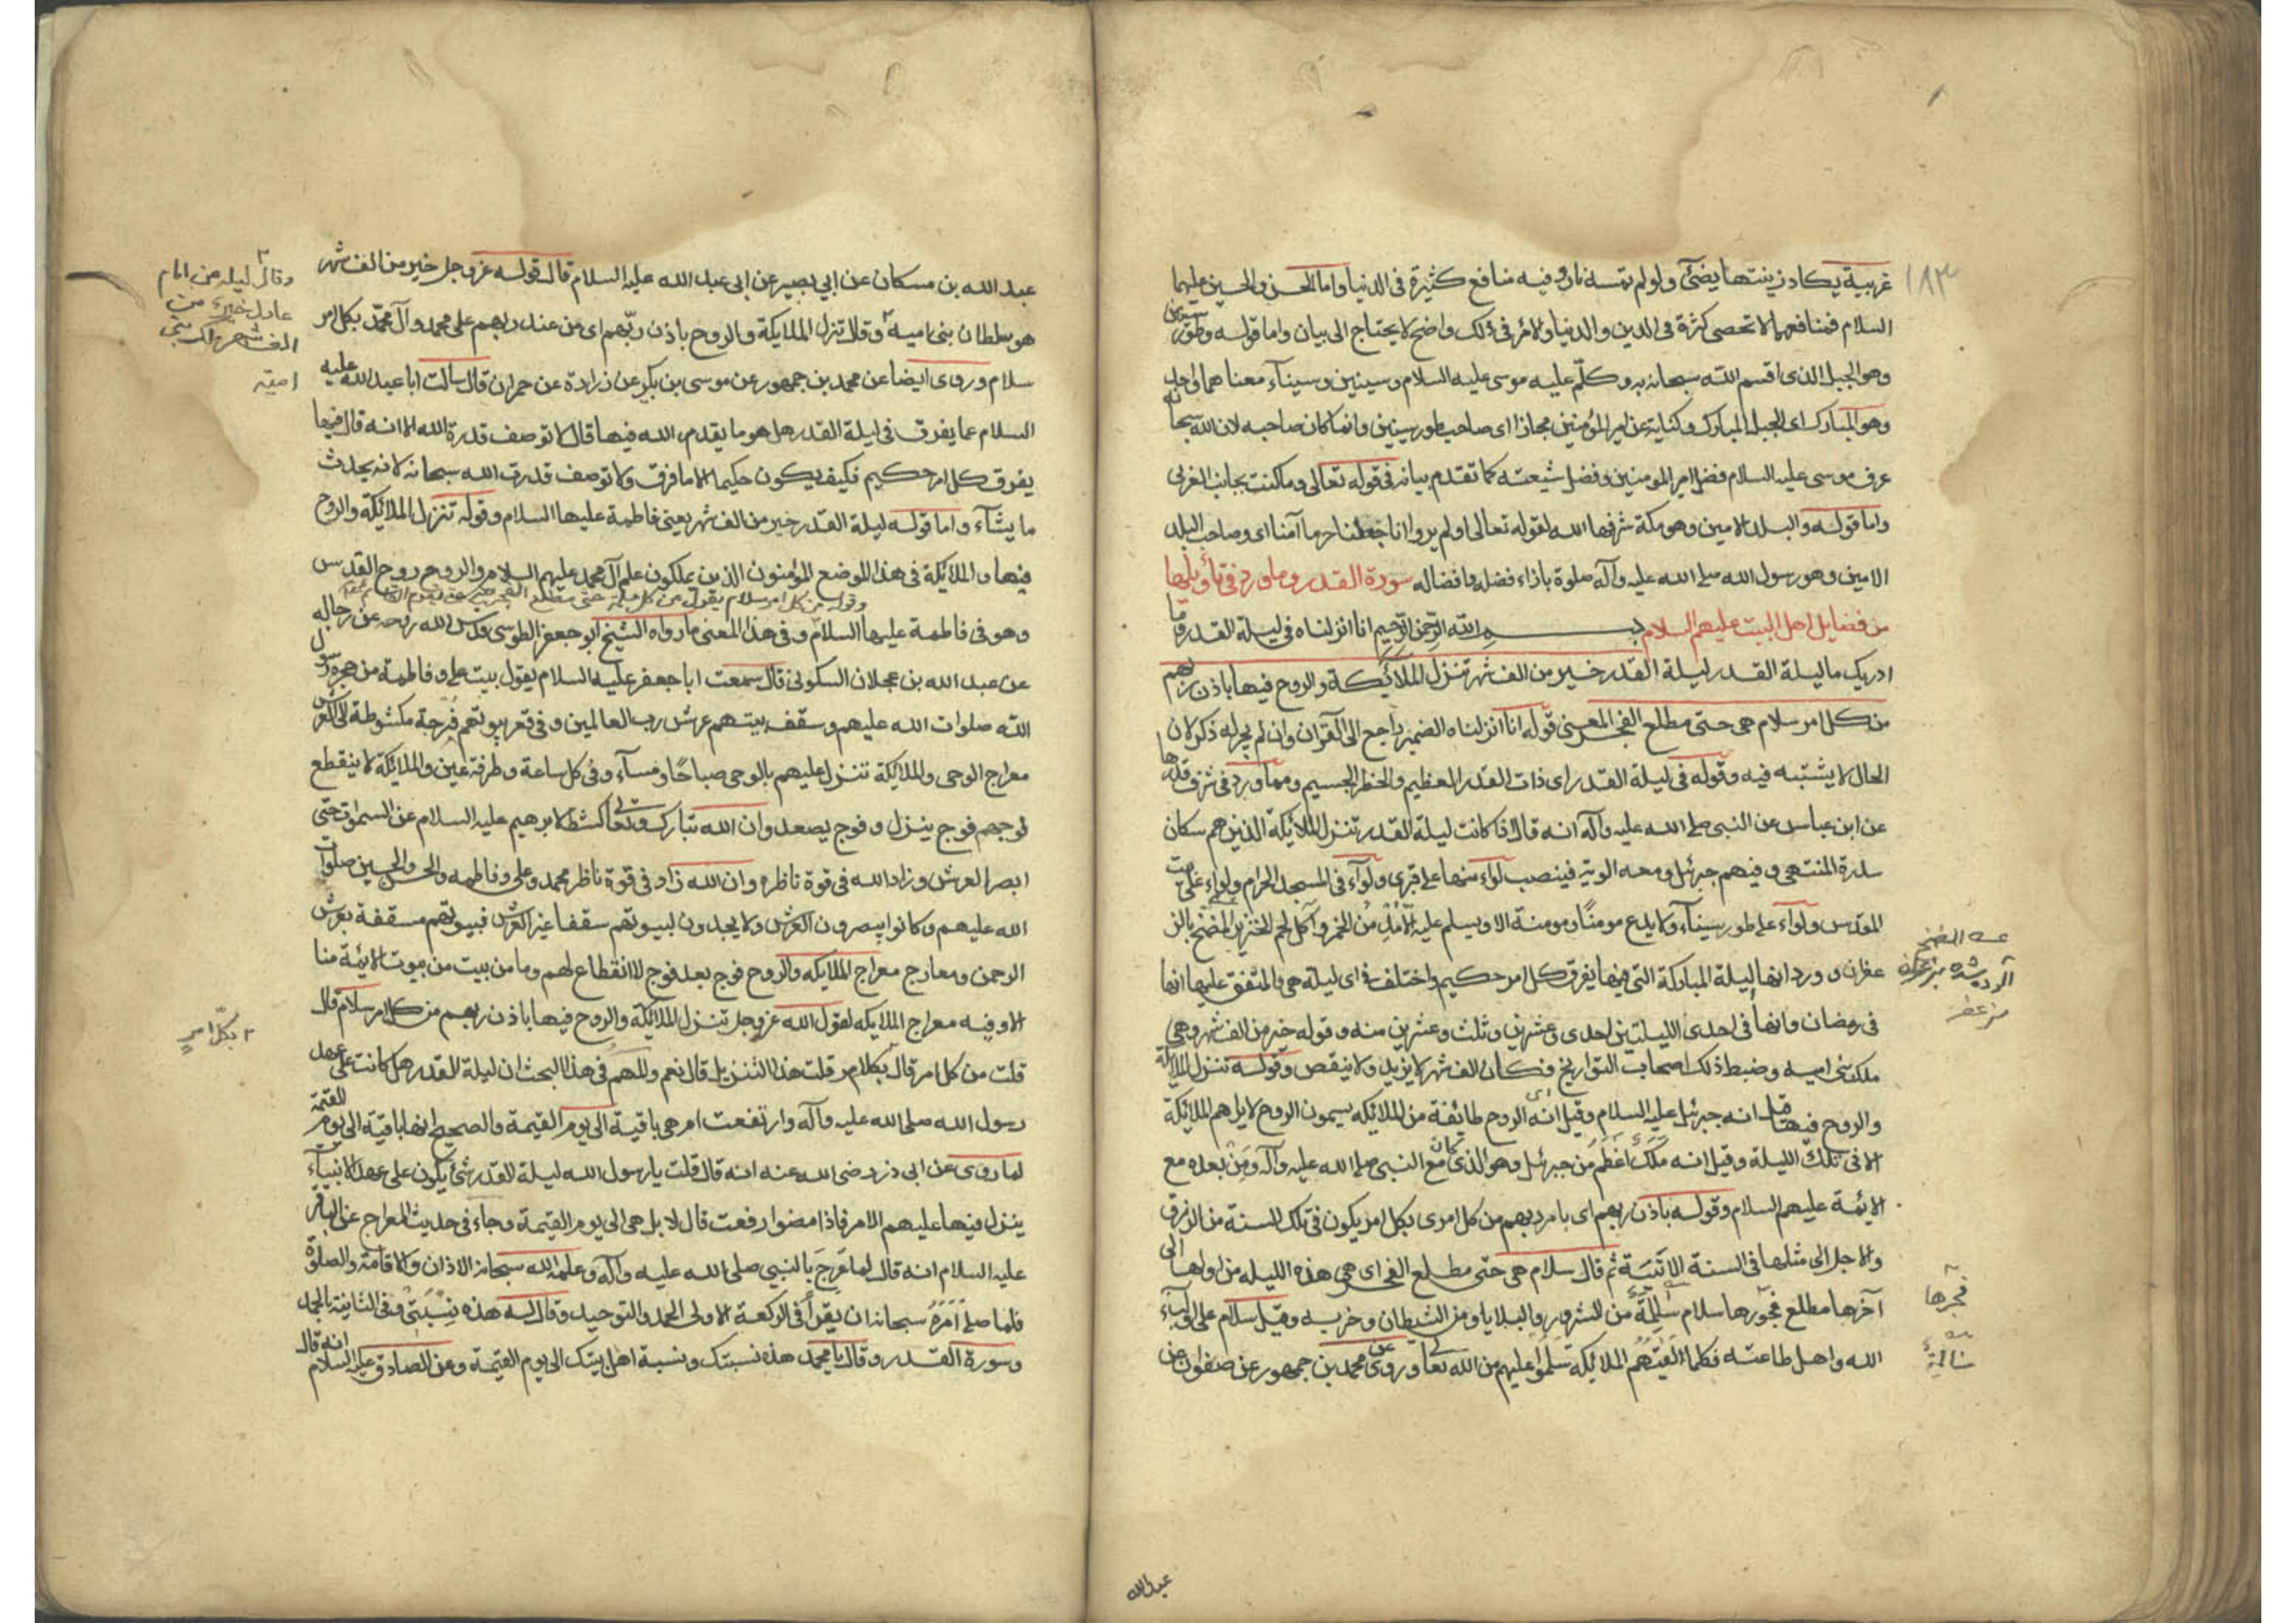 ١٨٣
غربية يكاد زيتها يضئ ولو لم تمسه نار وفيه منافع كثيرة فى الدنيا واما الحسن والحسين عليهما
السلام فمنافعهما لا تحصى كثرة فى الدين والدنيا والامر فى ذلك واضح لا يحتاج الى بيان واما قوله وطور سينين
وهو الجبل الذى اقسم الله سبحانه به وكلّم عليه موسى عليه السلام وسينين وسيناء معناهما واحد
وهو المبارك اى الجبل المبارك وكناية عن امير المؤمنين مجازا اى صاحب طور سينين وانما كان صاحبه لان الله سبحانه
عرف موسى عليه السلام فضل امير المومنين وفضل شيعته كما تقدم بيانه فى قوله تعالى وما كنت بجانب الغربى
واما قوله والبلد الامين وهو مكة شرفها الله لقوله تعالى اولم يروا انا جعلنا حرما آمنا اى وصاحب البلد
الامين وهو رسول الله صلى الله عليه وآله صلوة بازاء فضله وافضاله سورة القدر وما ورد فى تأويلها
من فضايل اهل البيت عليهم السلام بسم الله الرّحمن الرّحيم انا انزلناه فى ليلة القدر وما
ادريك ما ليلة القدر ليلة القدر خير من الف شهر تنزل الملائكة والروح فيها باذن ربهم
من كل امر سلام هى حتى مطلع الفجر المعنى قوله انا انزلناه الضمير راجع الى القرآن وان لم يجر له ذكر لان
الحال لا يشتبه فيه وقوله فى ليلة القدر اى ذات القدر العظيم والخطر الجسيم ومما ورد فى شرف قدرها
عن ابن عباس عن النبى صلى الله عليه وآله انه قال اذا كانت ليلة القدر تنزل الملائكة الذين هم سكان
سدرة المنتهى وفيهم جبرئيل ومعه الوية فينصب لواء منها على قبرى ولواء فى المسجد الحرام ولواء على بيت
المقدس ولواء على طور سيناء ولا يدع مومنًا ومومنة الا ويسلم عليه الّا مُدْمِن الخمر وآكل لحم الخنزير المضمخ بالز
عفران وورد انها الليلة المباركة التى فيها يفرق كل امر حكيم واختلف فى اى ليلة هى والمتفق عليها انها
فى رمضان وانها فى احدى الليلتين احدى وعشرين وثلث وعشرين منه وقوله خير من الف شهر وهى
ملك بنى اميه وضبط ذلك اصحاب التواريخ فكان الف شهر لا يزيد ولا ينقص وقوله تنزل الملائكة
والروح فيها قيل انه جبرئيل عليه السلام وقيل انّ الروح طائفة من الملائكه يسمون الروح لا يراهم الملائكة
الا فى تلك الليلة وقيل انه مَلَكٌ اعْظَم من جبرئيل وهو الذى كان مع النبى صلى الله عليه وآله ومن بعده مع
الائمة عليهم السلام وقوله باذن ربهم اى بامر ربهم من كل امر اى بكل امر يكون فى تلك السنة من الرزق
والاجل الى مثلها فى السنة الاتية ثم قال سلام هى حتى مطلع الفجر اى هى هذه الليله من اولها الى
آخرها مطلع فجرها سلام سالمة من الشرور والبلايا ومن الشيطان وحزبه وقيل سلام على اولياء
الله واهل طاعته فكلما لقيتهم الملائكة سلموا عليهم من الله تعالى وروى عن محمد بن جمهور عن صفوان عن
فجرها
سالمة
عبدالله
عبد الله بن مسكان عن ابي بصير عن ابى عبد الله عليه السلام قال قوله عز وجل خير من الف شهر
هو سلطان بنى امية وقال تنزل الملايكة والروح باذن ربّهم اى من عند ربهم على محمد وآل محمّد بكل امر
سلام وروى ايضا عن محمد بن جمهور عن موسى بن بكر عن زرارة عن حمران قال سالت ابا عبد الله عليه
السلام عما يفرق فى ليلة القدر هل هو ما يقدر الله فيها قال لا توصف قدرة الله الا انه قال فيها
يفرق كل امر حكيم فكيف يكون حكيما الا ما فرق ولا توصف قدرة الله سبحانه لانه يحدث
ما يشآء واما قوله ليلة القدر خير من الف شهر يعنى فاطمة عليها السلام وقوله تنزل الملائكة والروح
فيها والملائكة فى هذا الموضع المؤمنون الذين يملكون علم آل محمد عليهم السلام والروح روح القدس
وقوله من كل امر سلام يقول من كل مسلمة حتى مطلع الفجر يعنى حتى يقوم القائم
وهو فى فاطمة عليها السلام وفى هذا المعنى ما رواه الشيخ ابو جعفر الطوسى قدس الله روحه عن رجاله
عن عبد الله بن عجلان السكونى قال سمعت ابا جعفر عليه السلام يقول بيت على وفاطمة من حجرة رسول
الله صلوات الله عليهم وسقف بيتهم عرش رب العالمين وفى قعر بيوتهم فرجة مكشوطة الى العرش
معراج الوحى والملائكة تنزل عليهم بالوحى صباحًا ومساء وفى كل ساعة وطرفة عين والملائكة لا ينقطع
فوجهم فوج ينزل وفوج يصعد وان الله تبارك وتعالى كشط لابرهيم عليه السلام عن السموات حتى
ابصر العرش وزاد الله فى قوة ناظره وان الله زاد فى قوة ناظر محمد وعلى وفاطمه والحسن والحسين صلوات
الله عليهم وكانوا يبصرون العرش ولا يجدون لبيوتهم سقفا غير العرش فبيوتهم مسقفة بعرش
الرحمن ومعارج معراج الملايكه والروح فوج بعد فوج لا انقطاع لهم وما من بيت من بيوت الائمة منا
الا وفيه معراج الملايكه لقول الله عز وجل تنزل الملائكة والروح فيها باذن ربهم من كل امر سلام قال
قلت من كل امر قال بكل امر قلت هذا التنزيل قال نعم والمهم فى هذا البحث ان ليلة القدر هل كانت على عهد
رسول الله صلى الله عليه وآله وارتفعت ام هى باقية الى يوم القيمة والصحيح انها باقية الى يوم القيمة
لما روى عن ابى ذر رضى الله عنه انه قال قلت يا رسول الله ليلة القدر شئ يكون على عهد الانبياء
ينزل فيها عليهم الامر فاذا مضوا رفعت قال لا بل هى الى يوم القيمة وجاء فى حديث المعراج عن الباقر
عليه السلام انه قال لما عُرِجَ بالنبي صلى الله عليه وآله وعلمه الله سبحانه الاذان والاقامة والصلوة
فلما صلى اَمَرَهُ سبحانه ان يقرأ فى الركعة الاولى الحمد والتوحيد وقال له هذه نِسْبَتى وفى الثانية بالحمد
وسورة القدر وقال يا محمد هذه نسبتك ونسبة اهل بيتك الى يوم القيمة وعن الصادق عليه السلام انه قال
وقال ليله من امام
عادل خير من
الف شهر ملك بنى
اميّه
بكلّ امرٍ